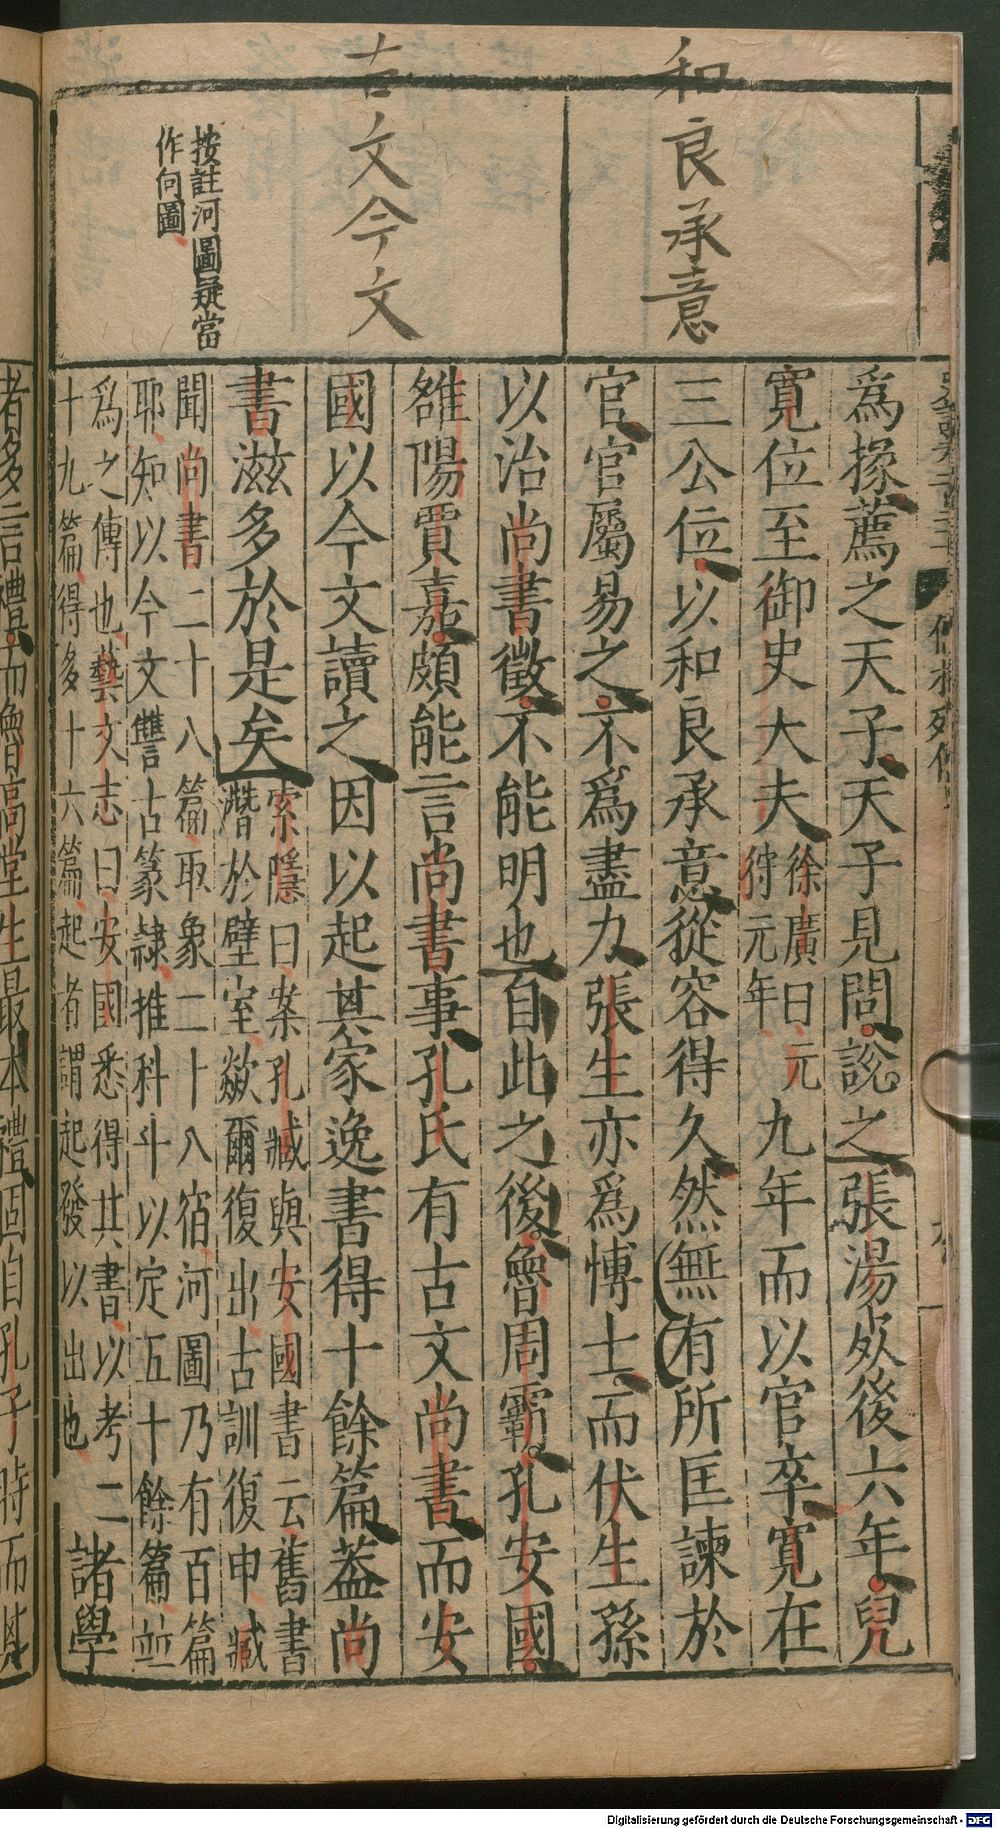 和良承意
古文今文
按註河圖疑當
作向圖
為掾薦之天子天子見問說之張湯死後六年兒
寬位至御史大夫徐廣曰元狩元年九年而以官卒寬在
三公位以和良承意從容得久然無有所匡諫於
官官屬易之不為盡力張生亦為博士而伏生孫
以治尚書徵不能明也自此之後魯周霸孔安國
雒陽賈嘉頗能言尚書事孔氏有古文尚書而安
國以今文讀之因以起其家逸書得十餘篇葢尚
書滋多於是矣索隱曰案孔臧與安國書云舊書
潛於壁室歘爾復出古訓復申臧
聞尚書二十八篇取象二十八宿河圖乃有百篇
耶知以今文讐古篆隷推科斗以定五十餘篇並
為之傳也藝文志曰安國悉得其書以考二
十九篇得多十六篇起者謂起發以出也諸學
者多言禮而魯高堂生最本禮固自孔子時而其
Digitalisierung gefördert durch die Deutsche Forschungsgemeinschaft - DFG